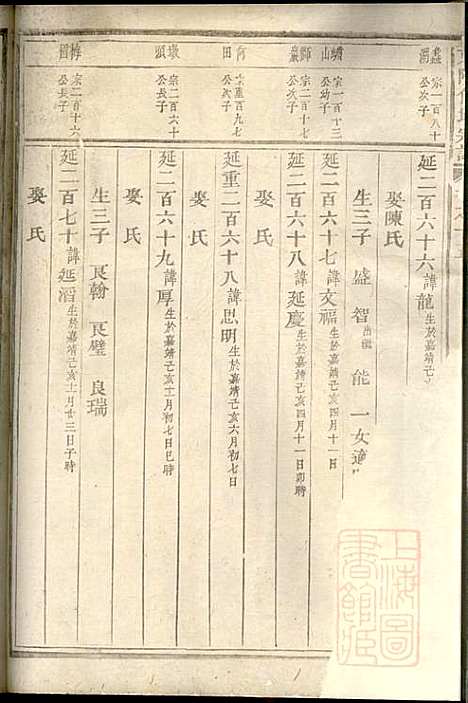 宗一百八十
公次子
延二百六十六諱龍生於嘉靖己
娶陳氏
生三子 盛 智出繼 能 一女適
山
宗一百十三
公幼子
延二百六十七諱文福生於嘉靖己亥四月十一日
獅巖
宗二百十一
公次子
延二百六十八諱延慶生於嘉靖己亥四月十一日卯時
娶 氏
田
宗重百九七
公次子
延重二百六十八諱思明生於嘉靖己亥六月初七日
娶 氏
墩頭
宗二百六十
公長子
延二百六十九諱厚生於嘉靖己亥十一月初七日巳時
娶 氏
生三子 良翰 良璧 良瑞
宗二百十六
公長子
延二百七十諱延滔生於嘉靖己亥十一月廿三日子時
娶 氏
上海圖書館藏